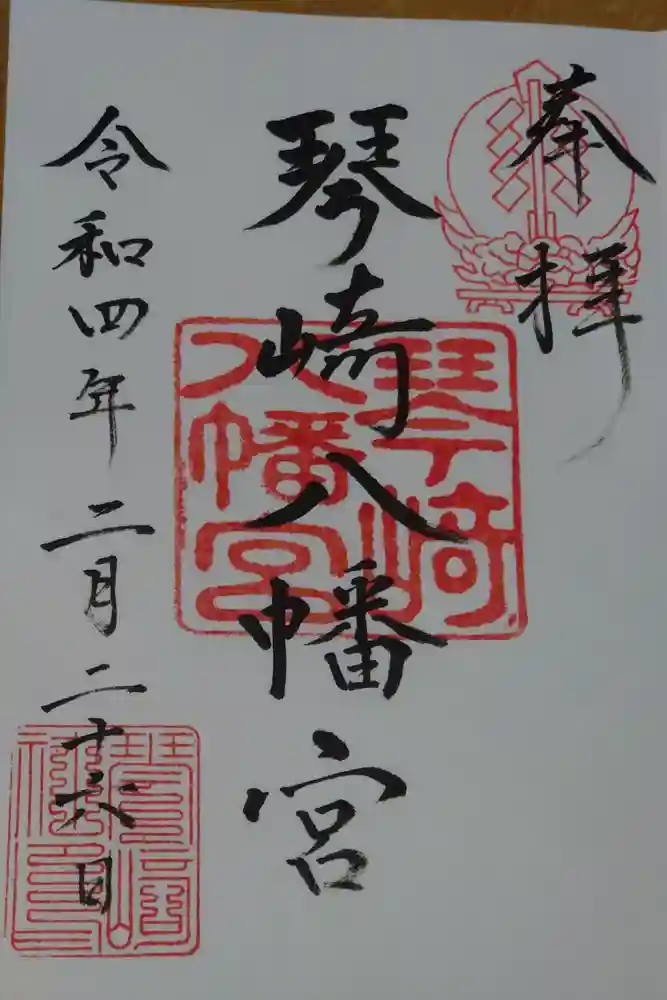 奉拝
琴崎八幡宮
令和四年二月二十六日
琴崎
八幡宮